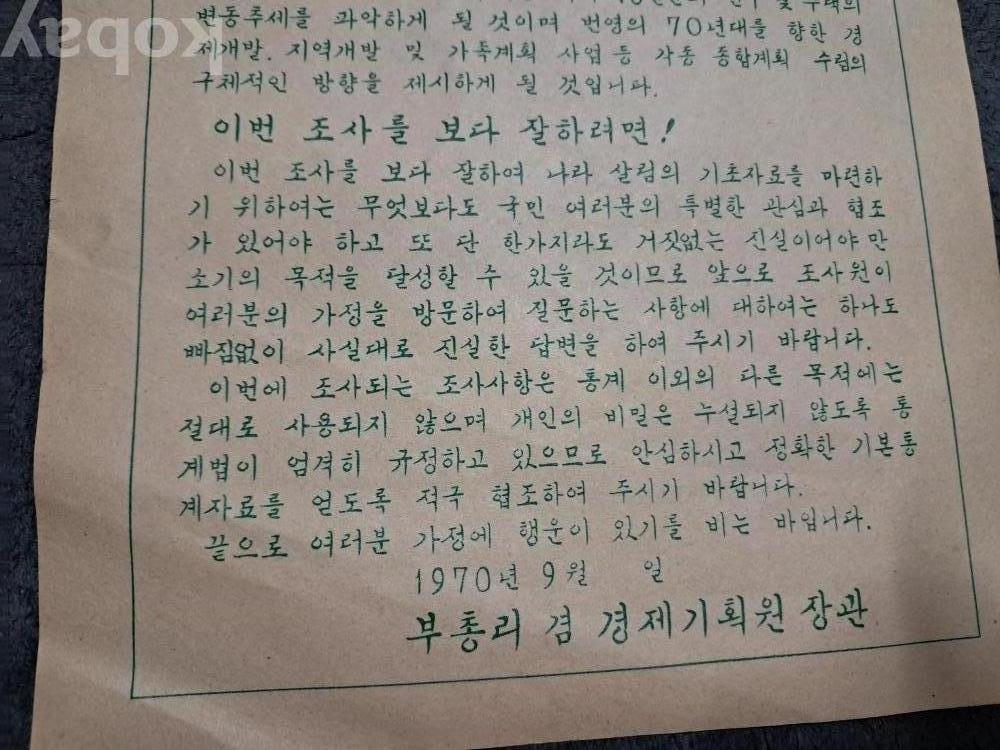 인구 및 주택의
변동추세를 과악하게 될 것이며 번영의 70년대를 향한 경
제개발. 지역개발 및 가족계획 사업 등 각종 종합계획 수립의
구체적인 방향을 제시하게 될 것입니다.
이번 조사를 보다 잘하려면!
이번 조사를 보다 잘하여 나라 살림의 기초자료를 마련하
기 위하여는 무엇보다도 국민 여러분의 특별한 관심과 협조
가 있어야 하고 또 단 한가지라도 거짓없는 진실이어야 만
소기의 목적을 달성할 수 있을 것이므로 앞으로 조사원이
여러분의 가정을 방문하여 질문하는 사항에 대하여는 하나도
빠짐없이 사실대로 진실한 답변을 하여 주시기 바랍니다.
이번에 조사되는 조사사항은 통계 이외의 다른 목적에는
절대로 사용되지 않으며 개인의 비밀은 누설되지 않도록 통
계법이 엄격히 규정하고 있으므로 안심하시고 정확한 기본통
계자료를 얻도록 적극 협조하여 주시기 바랍니다.
끝으로 여러분 가정에 행운이 있기를 비는 바입니다.
1970년 9월 일
부총리 겸 경제기획원 장관
kobay